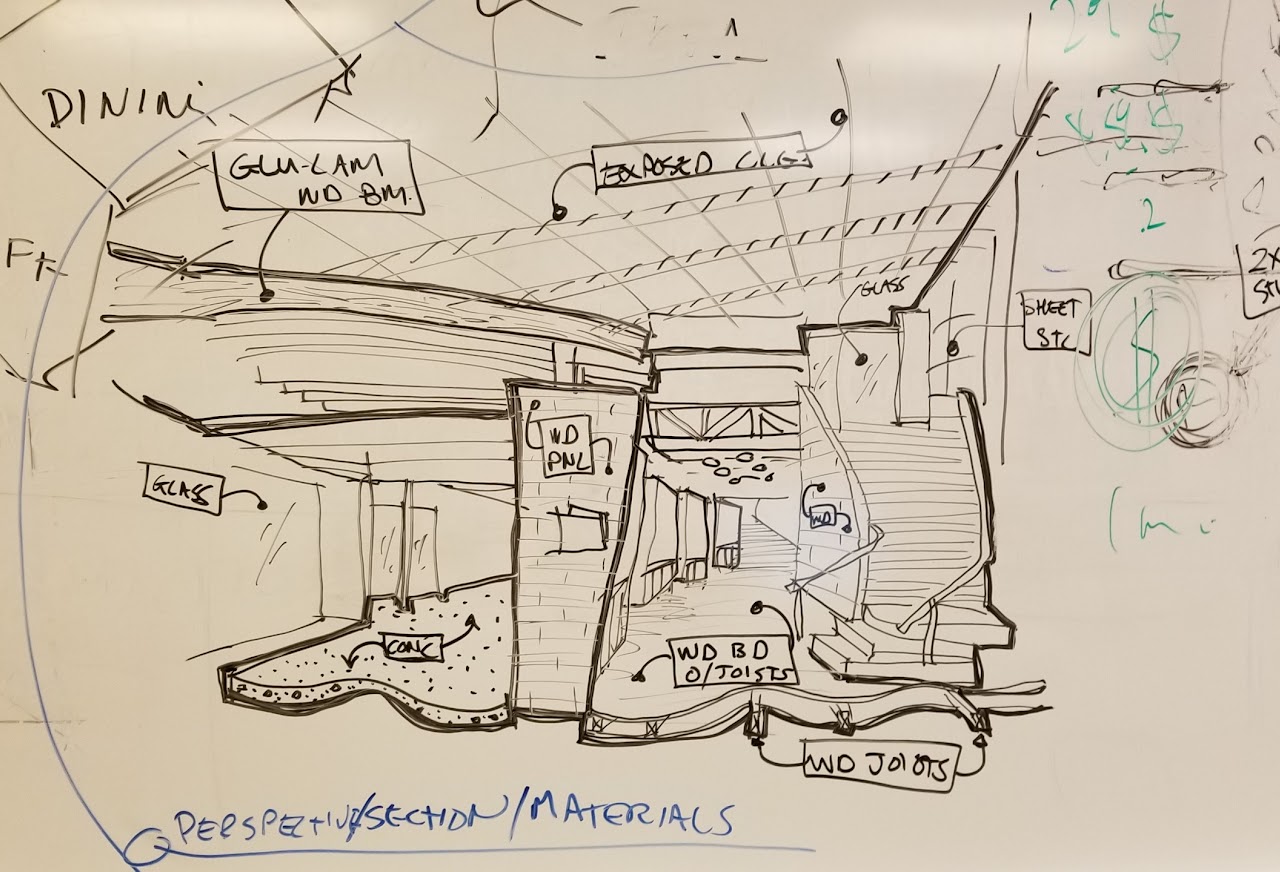 DINING
GLU-LAM
WD BM.
EXPOSED CLG
Ft
GLASS
SHEET
STL
2x
$
WD
PNL
GLASS
WD
CONC
WD BD
O/JOISTS
WD JOISTS
PERSPECTIVE/SECTION/MATERIALS
29 $
2